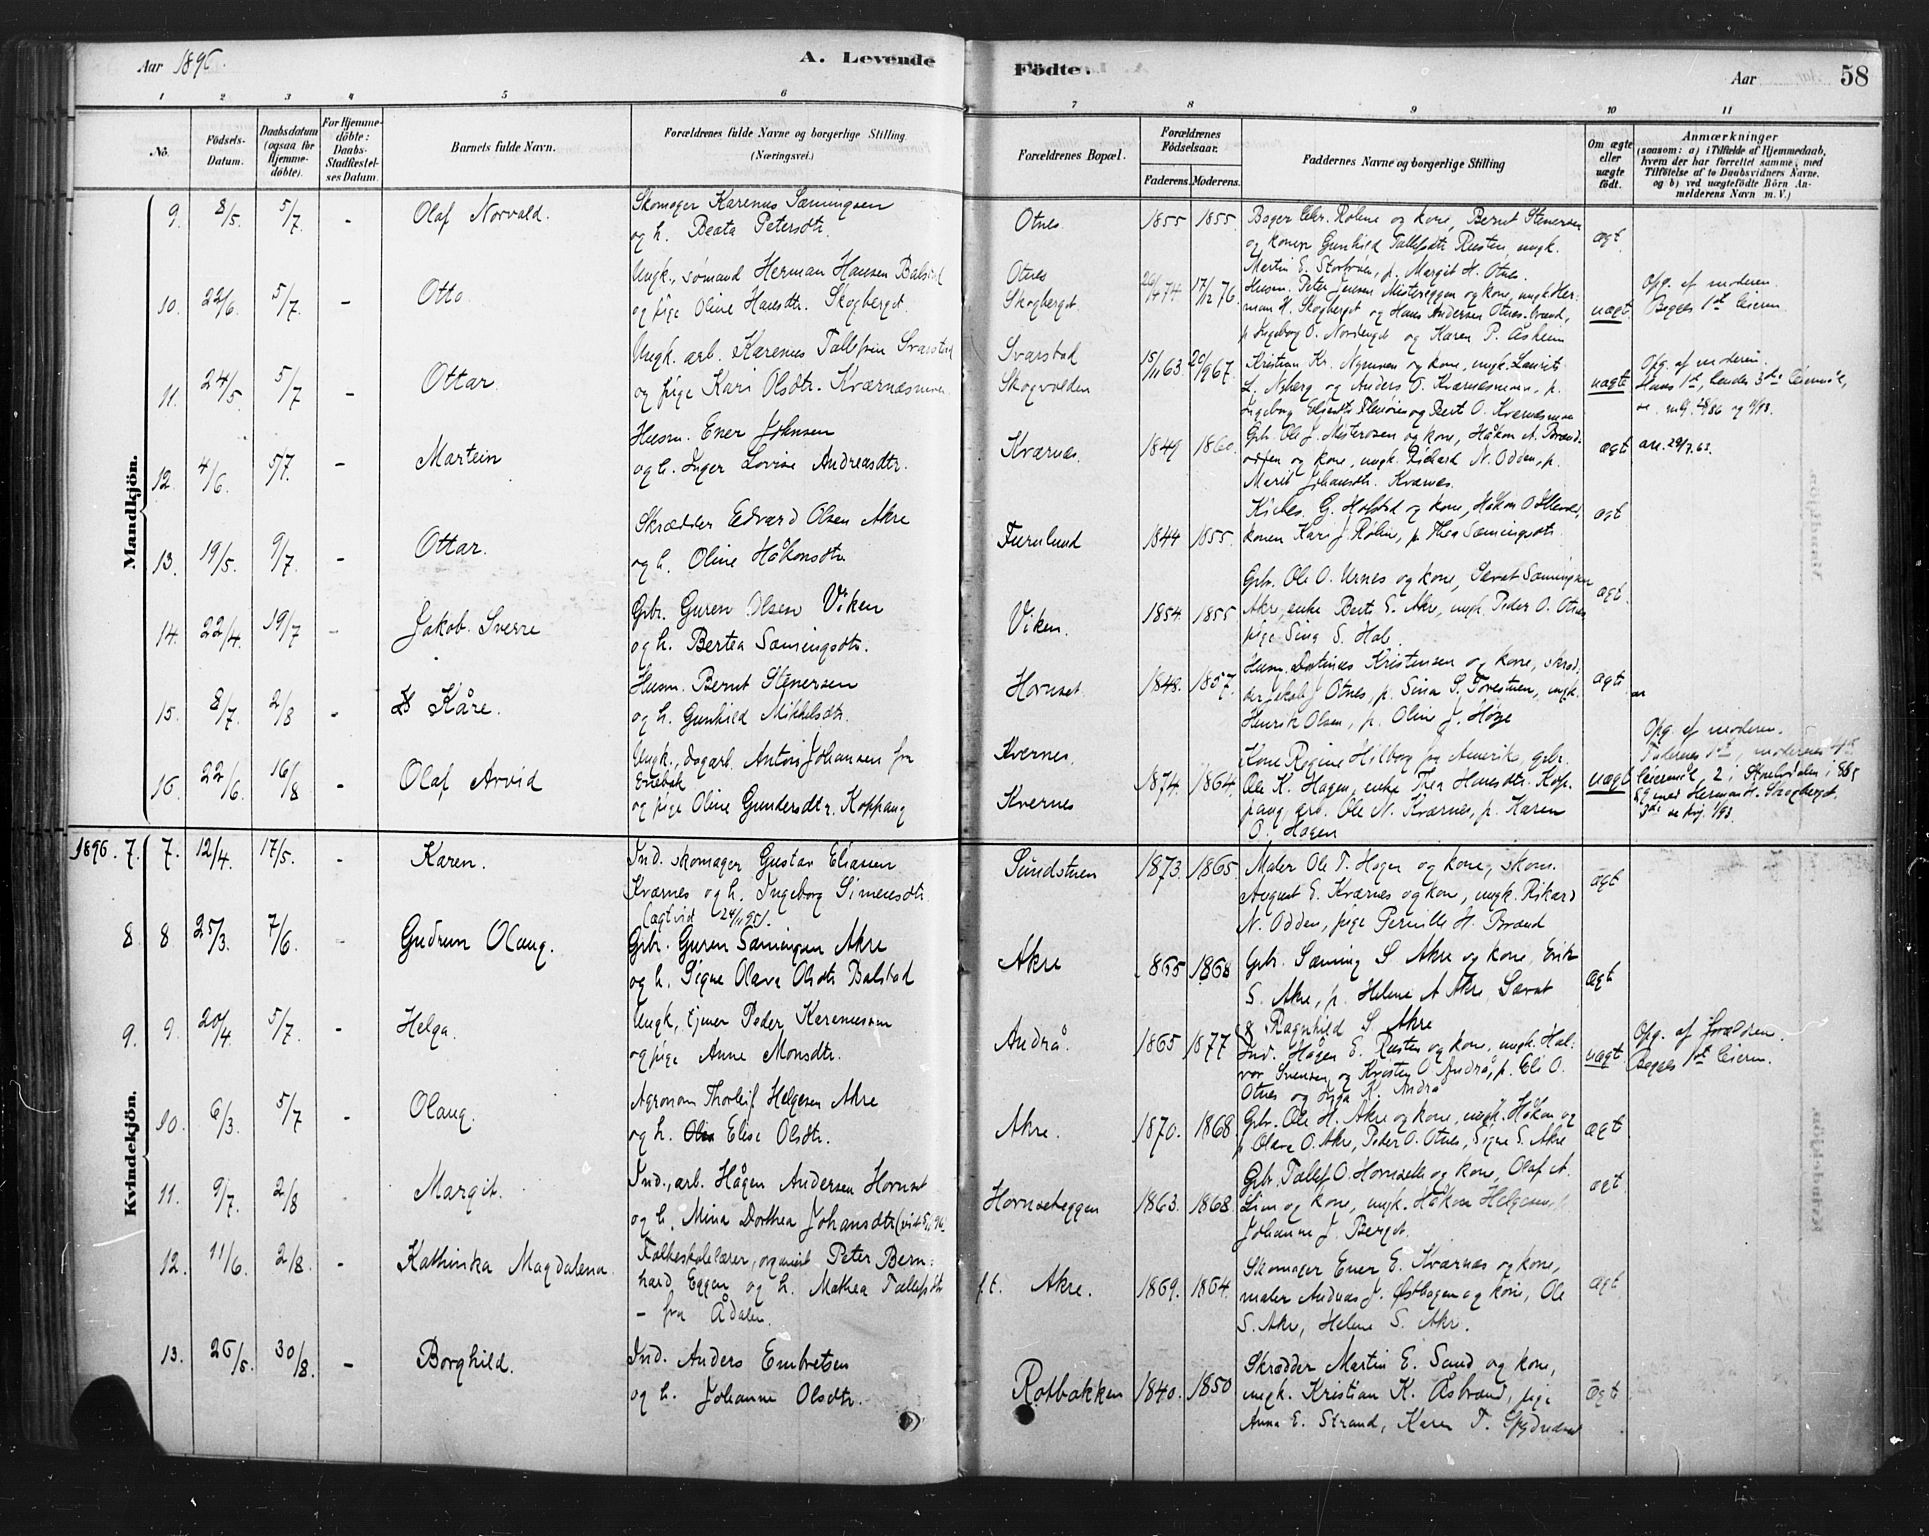 Aar 1896.
A. Levende
Födte.
Aar
58
1 2 3 4 5 6 7 8 9 10 11
No.
Födsels-
Datum.
Daabsdatum
(ogsaa for
Hjemme-
döbte).
For Hjemme-
döbte:
Daabs-
Stadfæstel-
ses Datum.
Barnets fulde Navn.
Forældrenes fulde Navne og borgerlige Stilling
(Næringsvei.)
Forældrenes Bopæl.
Forældrenes
Födselsaar.
Faderens. Moderens.
Faddernes Navne og borgerlige Stilling
Om ægte
eller
uægte
födt.
Anmærkninger
(saasom: a) i Tilfælde af Hjemmedaab,
hvem der har forrettet samme, med
Tilföielse af to Daabsvidners Navne.
og b) ved uægtefödte Börn An-
melderens Navn m. V.)
Mandkjön.
9. 8/5. 5/7. - Olaf Norvald.
Skomager Karenus Sæmingsen
og h. Beata Petersdtr.
Otnes. 1855 1855.
Bager Chr. Roline og kone, Bernt Stenersen
og konen Gunhild Tollefsdtr Rusten, ungk.
Martin E. Storfroen, p. Margit H. Otnes.
ægt.
10. 22/6. 5/7. - Otto
Ungk., sömand Herman Hansen Balstad
og pige Oline Hansdtr. Skogberget.
Otnes
Skogberget
17/12 76.
Husm. Peter Jensen Misterеggen og kone, ungk. Her-
man H. Skogberget og Hans Andersen Otnes-brænd,
p. Ingeborg O. Nordenget og Karen P. Aasheim
uægt.
Opg. af moderen.
Begges 1st leierm.
11. 24/5. 5/7 - Ottar.
Ungk. arb. Karenus Tollefsen Svarstad
og pige Kari Olsdtr. Kværnæsmoen.
Svarstad
Skogvolden
15/11 63 20/9 67.
Kristian Kr. Nymoen og kone, ungk. Laurits
L. Nyberg og Anders O. Kværnæsmoen, p.
uægte
Opg. af moderen.
Hans 1st, hendes 3die leiermål,
12. 4/6. 5/7. - Martein
Husm. Ener Johnsen
og h. Inger Lovise Andreasdtr.
Kværnæs. 1849 1860.
Gbr. Ole J. Misterosen og kone, Håkon A. Brænd-
odden og kone, ungk. Rickard N. Odden, p.
Marit Johansdtr. Kværnæs.
ægt
13. 19/5. 9/7. - Ottar.
Skrædder Edvard Olsen Akre
og h. Oline Håkonsdtr.
Furulund 1844 1855.
G. Holstad og kone,
konen Kari J. Rolin, p. Thea Sæmingsdtr.
ægt
14. 22/4. 19/7 - Jakob Sverre
Gbr. Guren Olsen Viken
og h. Bertea Sæmingsdtr.
Viken. 1854. 1855
Gbr. Ole O. Urnes og kone, Søvat Sæmingsen
Akre, enke Berte E. Akre, ungk. Peder O. Otnes
pige Sina S. Hal
ægt.
15. 8/7. 2/8 - Kåre.
Husm. Bernt Stenersen
og h. Gunhild Mikkelsdtr.
Hornset. 1848. 1857.
Husm. Kristensen og kone, skræd-
der Jakob J. Otnes, p. Sina S. Forestuen, ungk.
Henrik Olsen, p. Oline J. Høye
ægt.
16. 22/6. 16/8 - Olaf Arvid
Ungk., dagarb. Anton Johansen fra
Enebak
og pige Oline Gundersdtr. Koppang
Kvernes.
Kvernes 1874. 1864.
Kone Regine Hilborg fra Amerik, gbr.
Ole K. Hagen, enke Thea Hansdtr. Kop-
pang, arb. Ole N. Kværnes, p. Karen
O. Hagen
uægt
Opg. af moderen.
Faderens 1st, moderens 4de
leiermål, 2 i Storelvdalen i 885
og med Herman H. Skogberget.
1896. 7.
Kvindekjön.
7. 12/4. 17/5. - Karen.
Ind. skomager Gustav Eliasen
Kværnes og h. Ingeborg Simensdtr.
(ægtvid 24/11 95).
Sundstuen 1873. 1865
Maler Ole T. Hagen og kone, skom.
August E. Kværnes og kone, ungk. Rikard
N. Odden, pige Pernille H. Brænd
ægt
8. 8 25/3. 7/6. - Gudrun Olaug.
Gbr. Guren Sæmingsen Akre
og h. Signe Olava Olsdtr Balstad
Akre 865 1868
Gbr. Sæming S. Akre og kone, Erik
S. Akre, p. Helene A. Akre, Søvat
& Ragnhild S. Akre
ægt
9. 9. 20/4. 5/7. - Helga.
Ungk., tjener Peder Karenussen
og pige Anne Monsdtr.
Andrå. 1865 1877
Ind. Hågen E. Rusten og kone, ungk. Hal-
vor Svensen og Kristen O. Andrå, p. Eli O.
Otnes og Inga K. Andrå
uægt
Opg. af forældren.
Begges 1st leierm.
10. 6/3. 5/7 - Olaug.
Agronom Thorleif Helgesen Akre
og h. Elise Olsdtr.
Akre. 1870. 1868.
Gbr. Ole H. Akre og kone, ungk. Håkon og
p. Olava O. Akre, Peder O. Otnes, Signe S. Akre
ægt
11. 9/7. 2/8 - Margit.
Ind., arb. Hågen Andersen Hornset
og h. Mina Dorthea Johansdtr
Hornseteggen 1863. 1868.
Gbr. Tollef O. Hornseth og kone, Olaf A.
Lien og kone, ungk. Håkon Helgesen,
Johanne J. Berget.
ægt
12. 11/6. 2/8. - Kathinka Magdalena
Folkeskolelærer, organist Peter Bern-
hard Eggen og h. Mathea Tollefsdtr
- fra Ådalen.
f.t. Akre. 1869. 1864.
Skomager Ener E. Kværnæs og kone,
maler Andreas J. Østhagen og kone, Ole
S. Akre, Helene S. Akre.
ægt.
13. 26/5. 30/8. - Borghild.
Ind. Anders Embretsen
og h. Johanne Olsdtr.
Rotbakken 1840. 1850
Skrædder Martin E. Sand og kone,
ungk. Kristian K. Åsbrænd, pige
Anna E. Strand, Karen T.
ægt